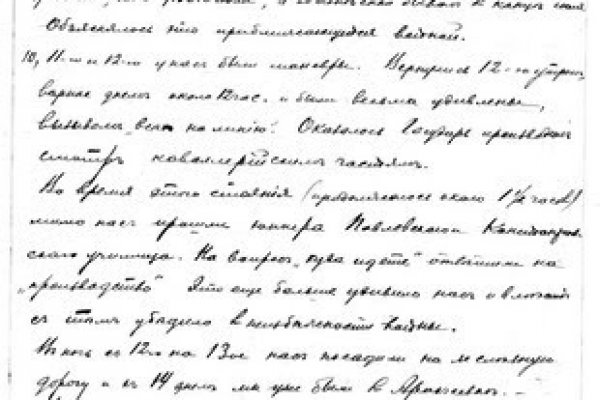 и
Объяснялось это приближающейся войной.
10, 11-го и 12-го у нас были маневры. Вернулись 12-го утром,
вернее днем около 12 час. и были весьма удивлены,
вызовом "всех на линию". Оказалось Государь производил
смотр кавалерийским частям.
Во время этого стояния (продолжалось около 1½ часов)
мимо нас прошли юнкера Павловского
ского училища. На вопрос "куда идете" отвечали на
"производство" Это еще больше удивило нас и
с тем убедило в неизбежности войны.
В ночь с 12го на 13ое нас посадили на железную
дорогу и 14 днем мы уже были в